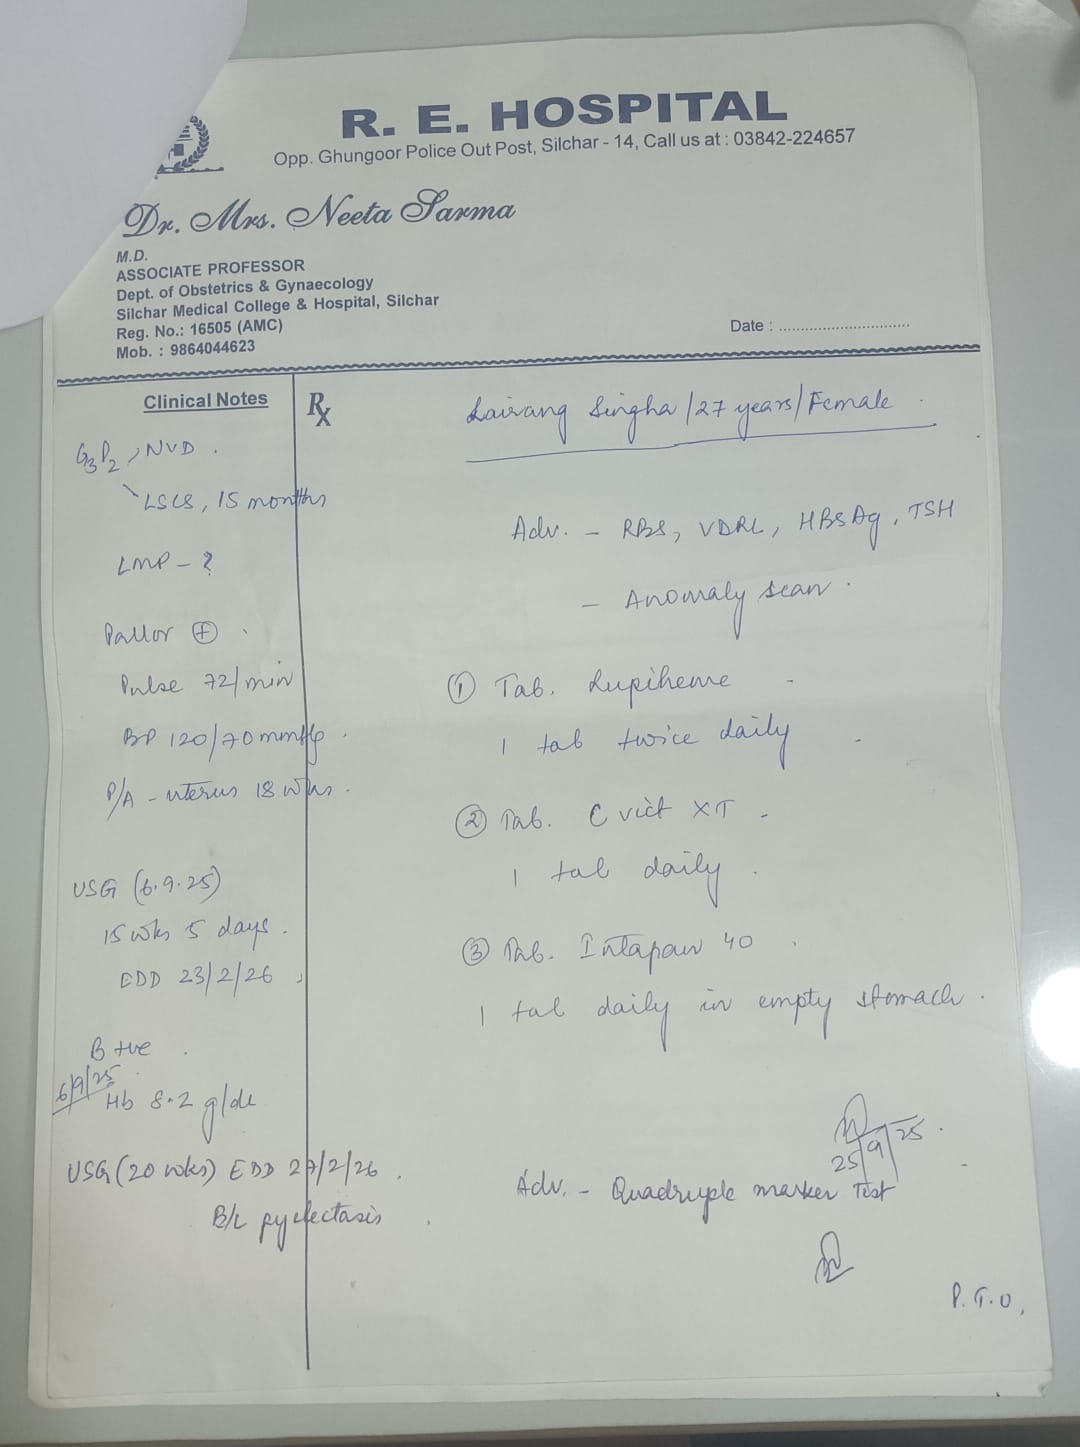 R. E. HOSPITAL
Opp. Ghungoor Police Out Post, Silchar - 14, Call us at : 03842-224657
Dr. Mrs. Neeta Sarma
M.D.
ASSOCIATE PROFESSOR
Dept. of Obstetrics & Gynaecology
Silchar Medical College & Hospital, Silchar
Reg. No.: 16505 (AMC)
Mob. : 9864044623
Date : ..............................
Clinical Notes
G3P2, NVD.
LSCS, 15 months
LMP - ?
Pallor (+)
Pulse 72/min
BP 120/70 mmHg.
P/A - uterus 18 wks.
USG (6.9.25)
15 wks 5 days.
EDD 23/2/26
B +ve
6/9/25
Hb 8.2 g/dL
USG (20 wks) EDD 27/2/26.
B/L pyelectasis
Rx
Lairang Singha / 27 years / Female
Adv. - RBS, VDRL, HBsAg, TSH
- Anomaly scan.
① Tab. Rupiheme
1 tab twice daily
② Tab. C vict XT
1 tab daily
③ Tab. Intapan 40
1 tab daily in empty stomach.
25/9/25.
Adv. - Quadruple marker Test
P.T.O,